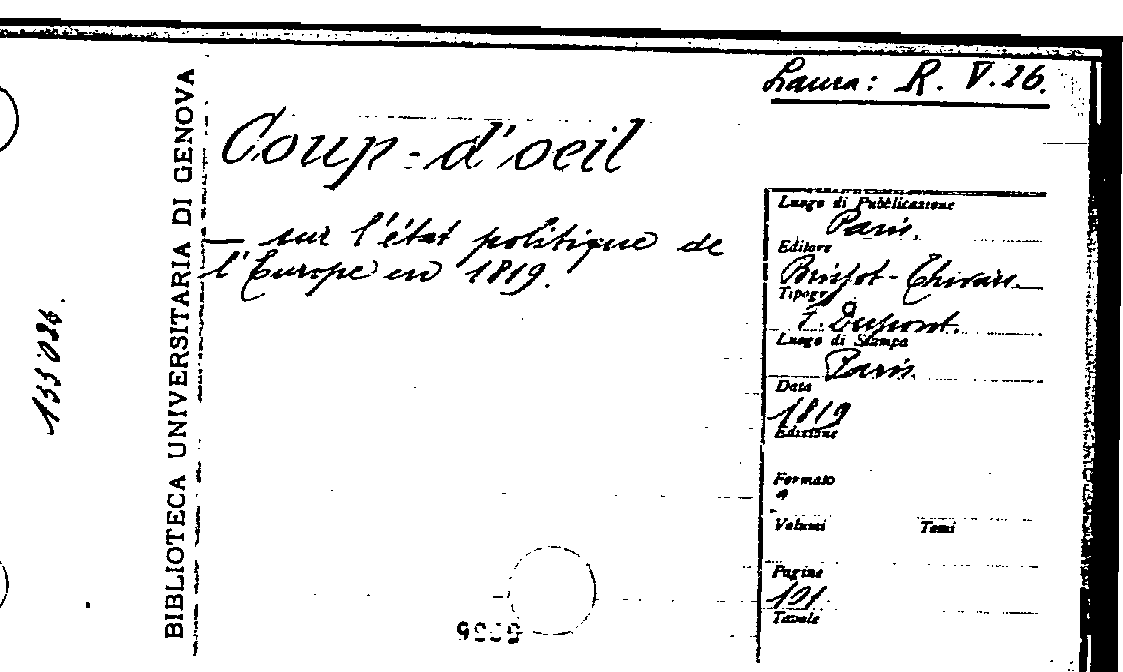 Laura: R. V. 26.
Coup-d'oeil
— sur l'état politique de
l'Europe en 1819.
BIBLIOTECA UNIVERSITARIA DI GENOVA
133026.
Luogo di Pubblicazione
Paris.
Editore
Brissot-Thivars.
Tipogr
Dupont.
Luogo di Stampa
Paris.
Data
1819
Edizione
Formato
Volumi Tomi
Pagine
191
Tavole